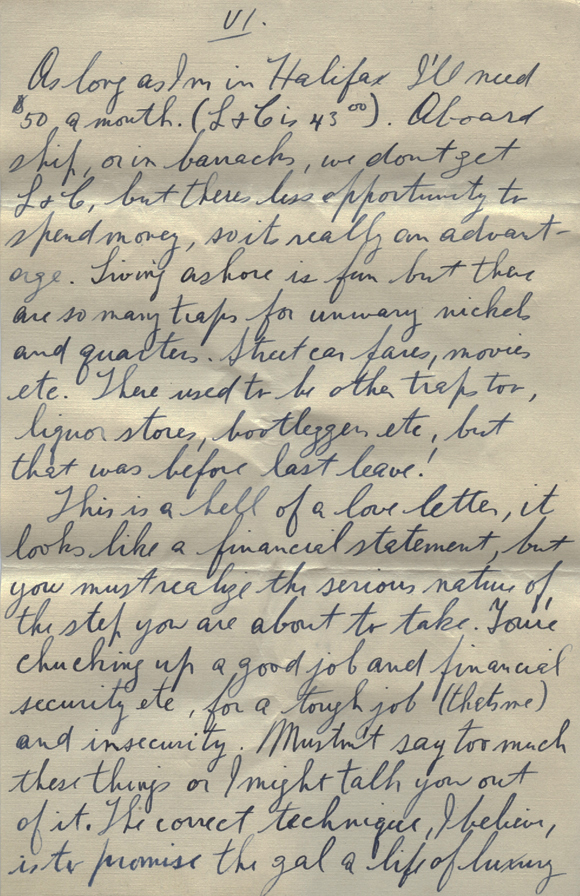 VI.
As long as I'm in Halifax I'll need
$50 a month. (L & C is 43 00). Aboard
ship, or in barracks, we dont get
L & C, but theres less opportunity to
spend money, so its really an advant-
age. Living ashore is fun but there
are so many traps for unwary nickels
and quarters. Street car fares, movies
etc. There used to be other traps too,
liquor stores, bootleggers etc, but
that was before last leave!
This is a hell of a love letter, it
looks like a financial statement, but
you must realize the serious nature of
the step you are about to take. You're
chucking up a good job and financial
security etc, for a tough job (thats me)
and insecurity. Mustn't say too much
these things or I might talk you out
of it. The correct technique, I believe,
is to promise the gal a life of luxury